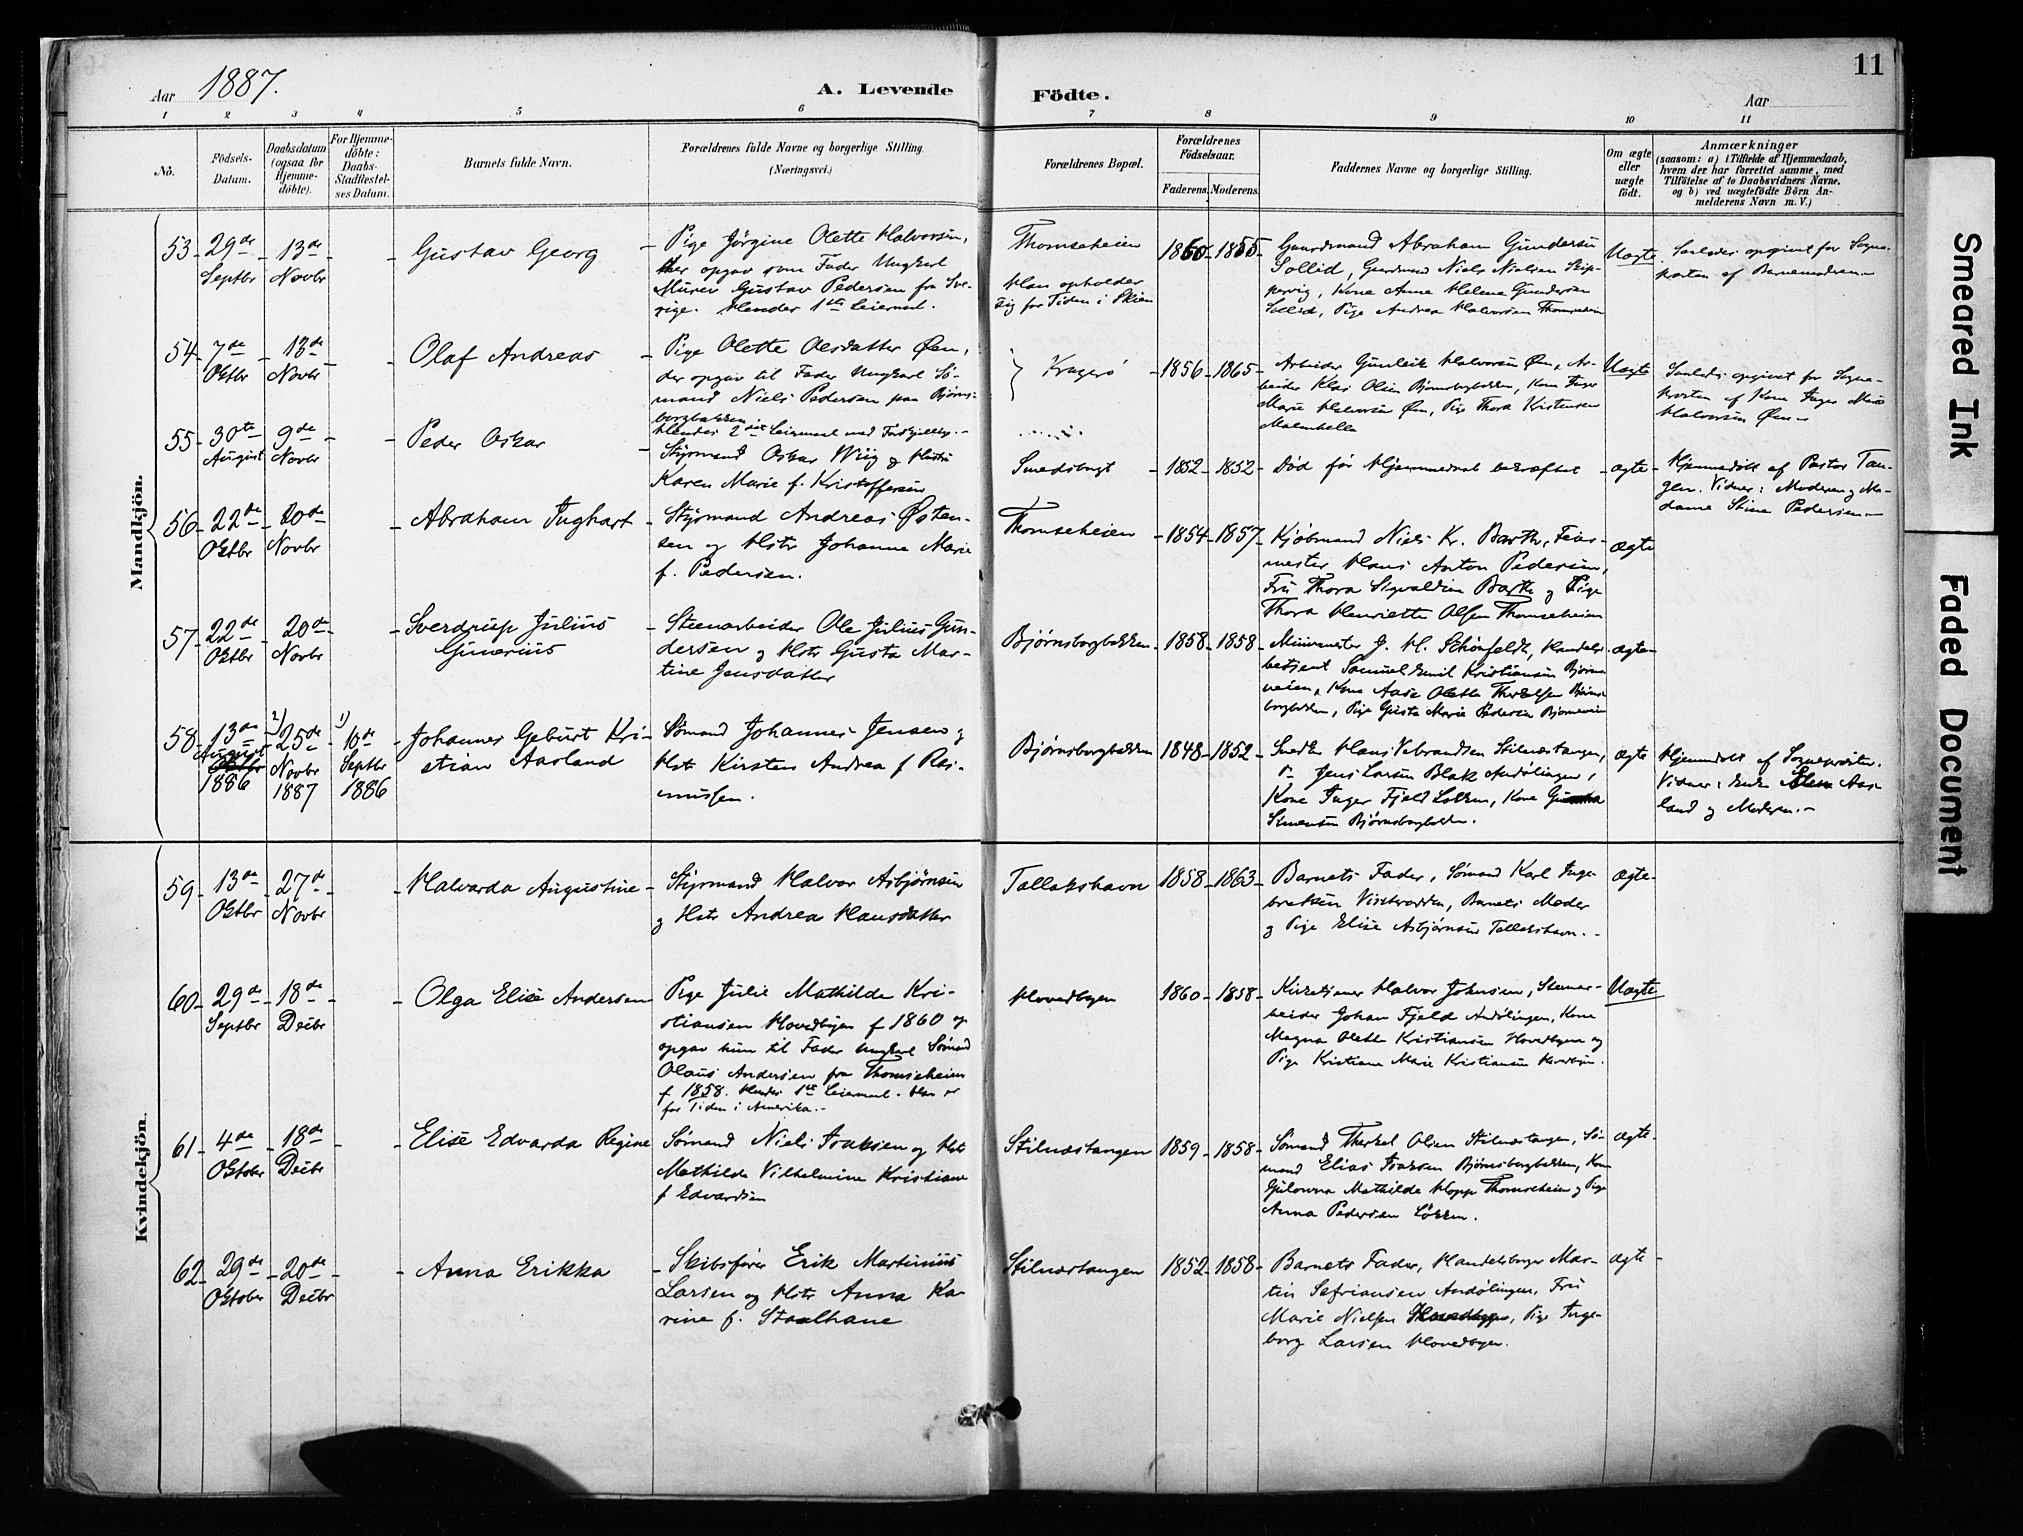 Aar 1887.
A. Levende Födte.
Aar
11
1 2 3 4 5 6 7 8 9 10 11
No.
Födsels-
Datum.
Daabsdatum
(ogsaa for
Hjemme-
döbte).
For Hjemme-
döbte:
Daabs-
Stadfæstel-
ses Datum.
Barnets fulde Navn.
Forældrenes fulde Navne og borgerlige Stilling
(Næringsvei.)
Forældrenes Bopæl.
Forældrenes
Födselsaar.
Faderens. Moderens.
Faddernes Navne og borgerlige Stilling.
Om ægte
eller
uægte
födt.
Anmærkninger
(saasom: a) i Tilfælde af Hjemmedaab,
hvem der har forrettet samme, med
Tilföielse af to Daabsvidners Navne,
og b) ved uægtefödte Börn An-
melderens Navn m.V.)
Mandkjön.
53 29de Septbr
13de Novbr
Gustav Georg
Pige Jørgine Olette Halvorsen,
her opgav som Fader Ungkarl
Murer Gustav Pedersen fra Sve-
rige. Hendes 1ste Leiermaal.
Thomseheien
Han opholder
sig for Tiden i Skien
1860 1855
Gaardmand Abraham Gundersen
Sollid, Gaardmand Niels Nielsen Skip-
pervig, Kone Anne Helene Gundersen
Sollid, Pige Andrea Halvorsen Thomseheien
Uægte
Saaledes opgivet for Sogne-
præsten af Barnemoderen
54 7de Oktbr
13de Novbr
Olaf Andreas
Pige Olette Olsdatter Øen,
der opgav til Fader Ungkarl Sø-
mand Niels Pedersen paa Bjørns-
borgbakken
Hendes 2det Leiermaal med Forskjellige.
Kragerø
1856 1865
Arbeider Gunleik Halvorsen Øen, Ar-
beider Klas Olsen Bjørnsborgbakken, Kone Inger
Marie Halvorsen Øen, Pige Thora Kristensen
Malmhella
Uægte
Saaledes opgivet for Sogne-
præsten af Kone Inger Marie
Halvorsen Øen
55 30te August
9de Novbr
Peder Oskar
Styrmand Oskar Wiig og Hustru
Karen Marie f. Kristoffersen
Smedsbugt
1852 1852
Død før Hjemmedaab bekræftet
ægte
Hjemmedøbt af Pastor Tan-
gen. Vidner: Moderen og Ma-
dame Stine Pedersen
56 22de Oktbr
20de Novbr
Abraham Inghart
Styrmand Andreas Østen-
sen og Hstr Johanne Marie
f. Pedersen.
Thomseheien
1854 1857
Kjøbmand Niels K. Barth, Feier-
mester Hans Anton Pedersen,
Fru Thora Sigvaldine Barth og Pige
Thora Henriette Olsen Thomseheien
ægte
57 22de Oktbr
20de Novbr
Sverdrup Julius
Gunerius
Steenarbeider Ole Julius Gun-
dersen og Hstr Gusta Mar-
tine Jensdatter
Bjørnsborgbakken
1858 1858
Minemester J. H. Schönfeldt, Handels-
betjent Samuel Emil Kristiansen Bjørne
veien, Kone Aase Olette Therkelsen Bjørns-
borgbakken, Pige Gusta Marie Pedersen Bjørneveien
ægte
58 13de August Oktbr 1886
2) 25de Novbr 1887
1) 10de Septbr 1886
Johannes Geburt Kri-
stian Aasland
Sømand Johannes Jensen og
Hstr Kirsten Andrea f. Ras-
mussen.
Bjørnsborgbakken
1848 1852
Snedker Hans Vebrandsen Stilnæstangen,
Do Jens Larsen Blak Andølingen,
Kone Inger Fjeld Løkken, Kone
Simensen Bjørnsborgbakken.
ægte
Hjemmedøbt af Sognepræsten.
Vidner: Enke Aas-
land og Moderen.
Kvindekjön.
59 13de Oktbr
27de Novbr
Halvarda Augustine
Styrmand Halvor Asbjørnsen
og Hstr Andrea Hansdatter
Tallakshavn
1858 1863
Barnets Fader, Sømand Karl Inge-
bretsen Visstrædden, Barnets Moder
og Pige Elise Asbjørnsen Tallakshavn.
ægte
60 29de Septbr
18de Decbr
Olga Elise Andersen
Pige Julie Mathilde Kri-
stiansen Hovedbyen f 1860 og
opgav hun til Fader Ungkarl Sømand
Olaus Andersen fra Thomseheien
f 1858. Hendes 1ste Leiermaal. Han er
for Tiden i Amerika.
Hovedbyen
1860 1858
Kirketjener Halvor Johnsen, Stenar-
beider Johan Fjeld Andølingen, Kone
Magna Olette Kristiansen Hovedbyen og
Pige Kristiane Marie Kristiansen Hovedbyen.
Uægte
61 4de Oktober
18de Decbr
Elise Edvarda Regine
Sømand Niels Isaksen og Hstr
Mathilde Vilhelmine Kristiane
f Edvardsen
Stilnæstangen
1859 1858
Sømand Therkel Olsen Stilnæstangen, Sø-
mand Elias Isaksen Bjørnsborgbakken, Kone
Gulowna Mathilde Hopp Thomseheien og Pige
Anna Pedersen Løkken.
ægte
62 29de Oktober
20de Decbr
Anna Erikka
Skibsfører Erik Martinius
Larsen og Hstr Anna Ka-
rine f. Staalhane
Stilnæstangen
1852 1858
Barnets Fader, Handelsborger Mar-
tin Sefriansen Andølingen, Fru
Marie Nielsen Hovedbyen, Pige Inge-
borg Larsen Hovedbyen.
ægte
Smeared Ink
Faded Document